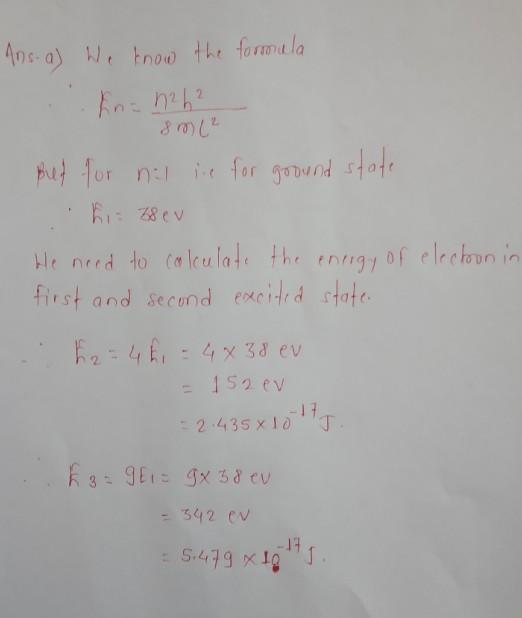 Ans. a) We know the formula
∴ En = n²h² / 8ml²
But for n=1 i.e for ground state
∴ E1 = 38 ev
We need to calculate the energy of electron in
first and second excited state.
∴ E2 = 4E1 = 4 x 38 ev
= 152 ev
= 2.435 x 10^-17 J.
∴ E3 = 9E1 = 9x 38 ev
= 342 ev
= 5.479 x 10^-17 J.